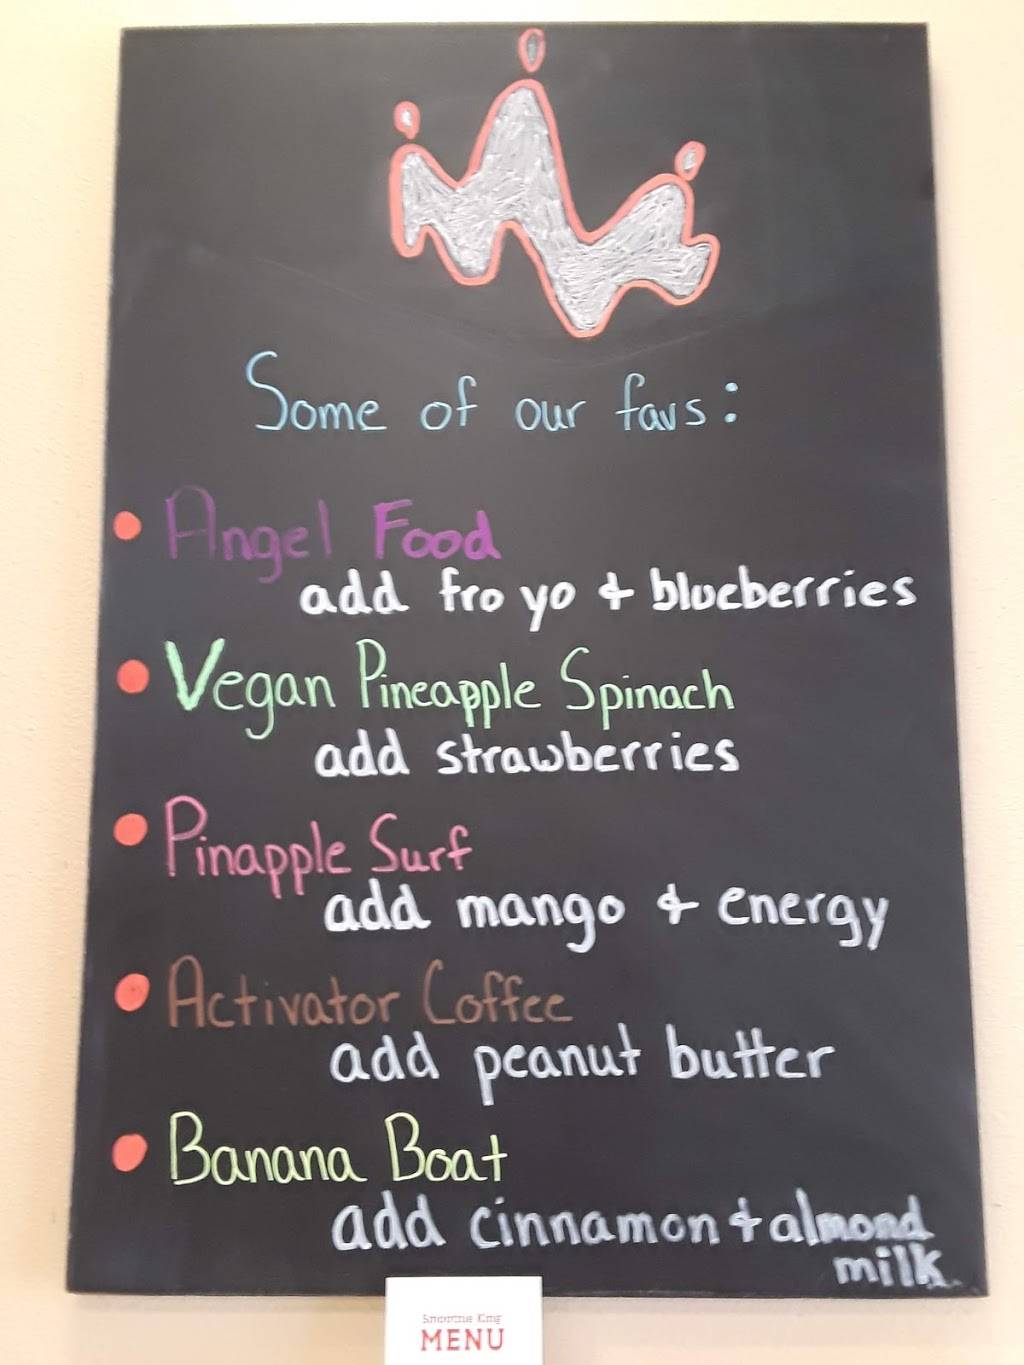 Some of our favs:
• Angel Food
add fro yo & blueberries
• Vegan Pineapple Spinach
add strawberries
• Pinapple Surf
add mango & energy
• Activator Coffee
add peanut butter
• Banana Boat
add cinnamon & almond
milk
Smoothie King
MENU